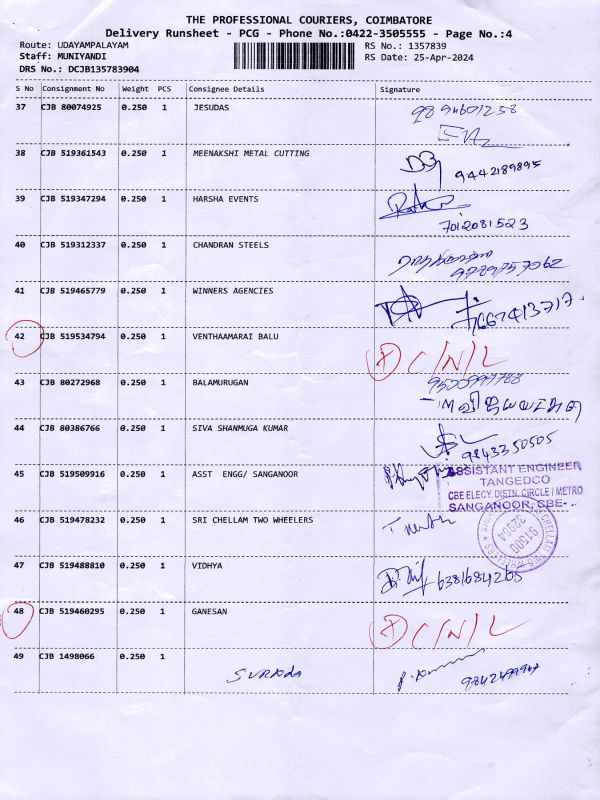 THE PROFESSIONAL COURIERS, COIMBATORE
Delivery Runsheet - PCG - Phone No.:0422-3505555 - Page No.:4
Route: UDAYAMPALAYAM RS No.: 1357839
Staff: MUNIYANDI RS Date: 25-Apr-2024
DRS No.: DCJB135783904
S No Consignment No Weight PCS Consignee Details Signature
37 CJB 80074925 0.250 1 JESUDAS
38 CJB 519361543 0.250 1 MEENAKSHI METAL CUTTING
9442189895
39 CJB 519347294 0.250 1 HARSHA EVENTS
7012081523
40 CJB 519312337 0.250 1 CHANDRAN STEELS
41 CJB 519465779 0.250 1 WINNERS AGENCIES
42 CJB 519534794 0.250 1 VENTHAAMARAI BALU
C/N/L
43 CJB 80272968 0.250 1 BALAMURUGAN
44 CJB 80386766 0.250 1 SIVA SHANMUGA KUMAR
9843350505
45 CJB 519509916 0.250 1 ASST ENGG/ SANGANOOR
ASSISTANT ENGINEER
TANGEDCO
CBE ELECY. DISTN. CIRCLE / METRO
SANGANOOR, CBE-
46 CJB 519478232 0.250 1 SRI CHELLAM TWO WHEELERS
47 CJB 519488810 0.250 1 VIDHYA
6381684265
48 CJB 519460295 0.250 1 GANESAN
C/N/L
49 CJB 1498066 0.250 1